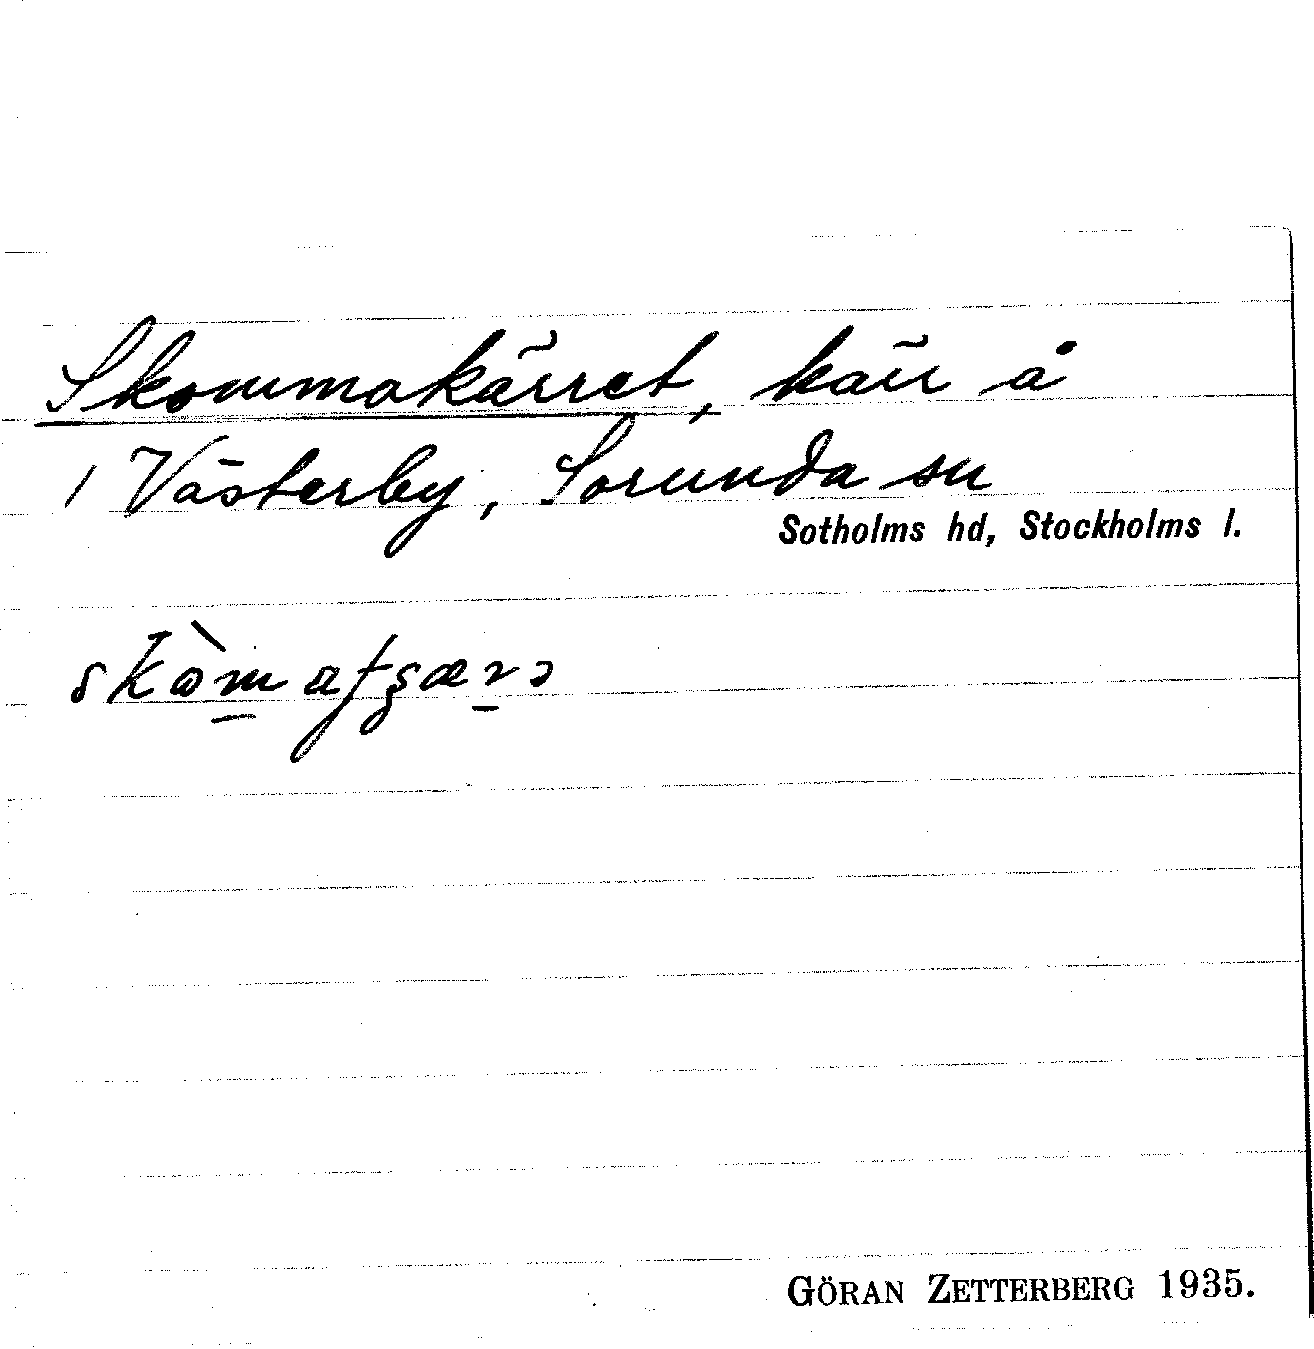 Skommakärret, kärr å
/ Västerby, Sorunda sn
Sotholms hd, Stockholms l.
GÖRAN ZETTERBERG 1935.